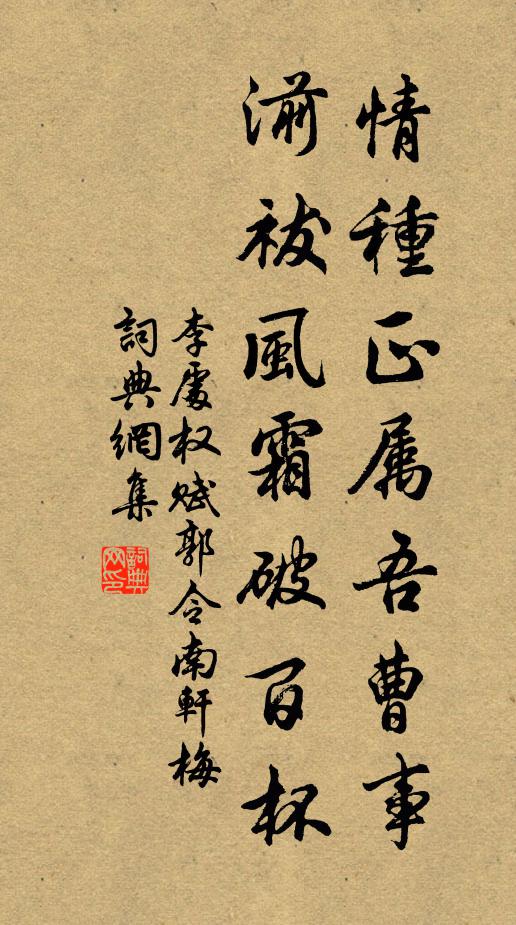 情種正属吾曹事
湔祓風霜破百杯
李處权赋郭令南軒梅
詞典網集
詞典网印